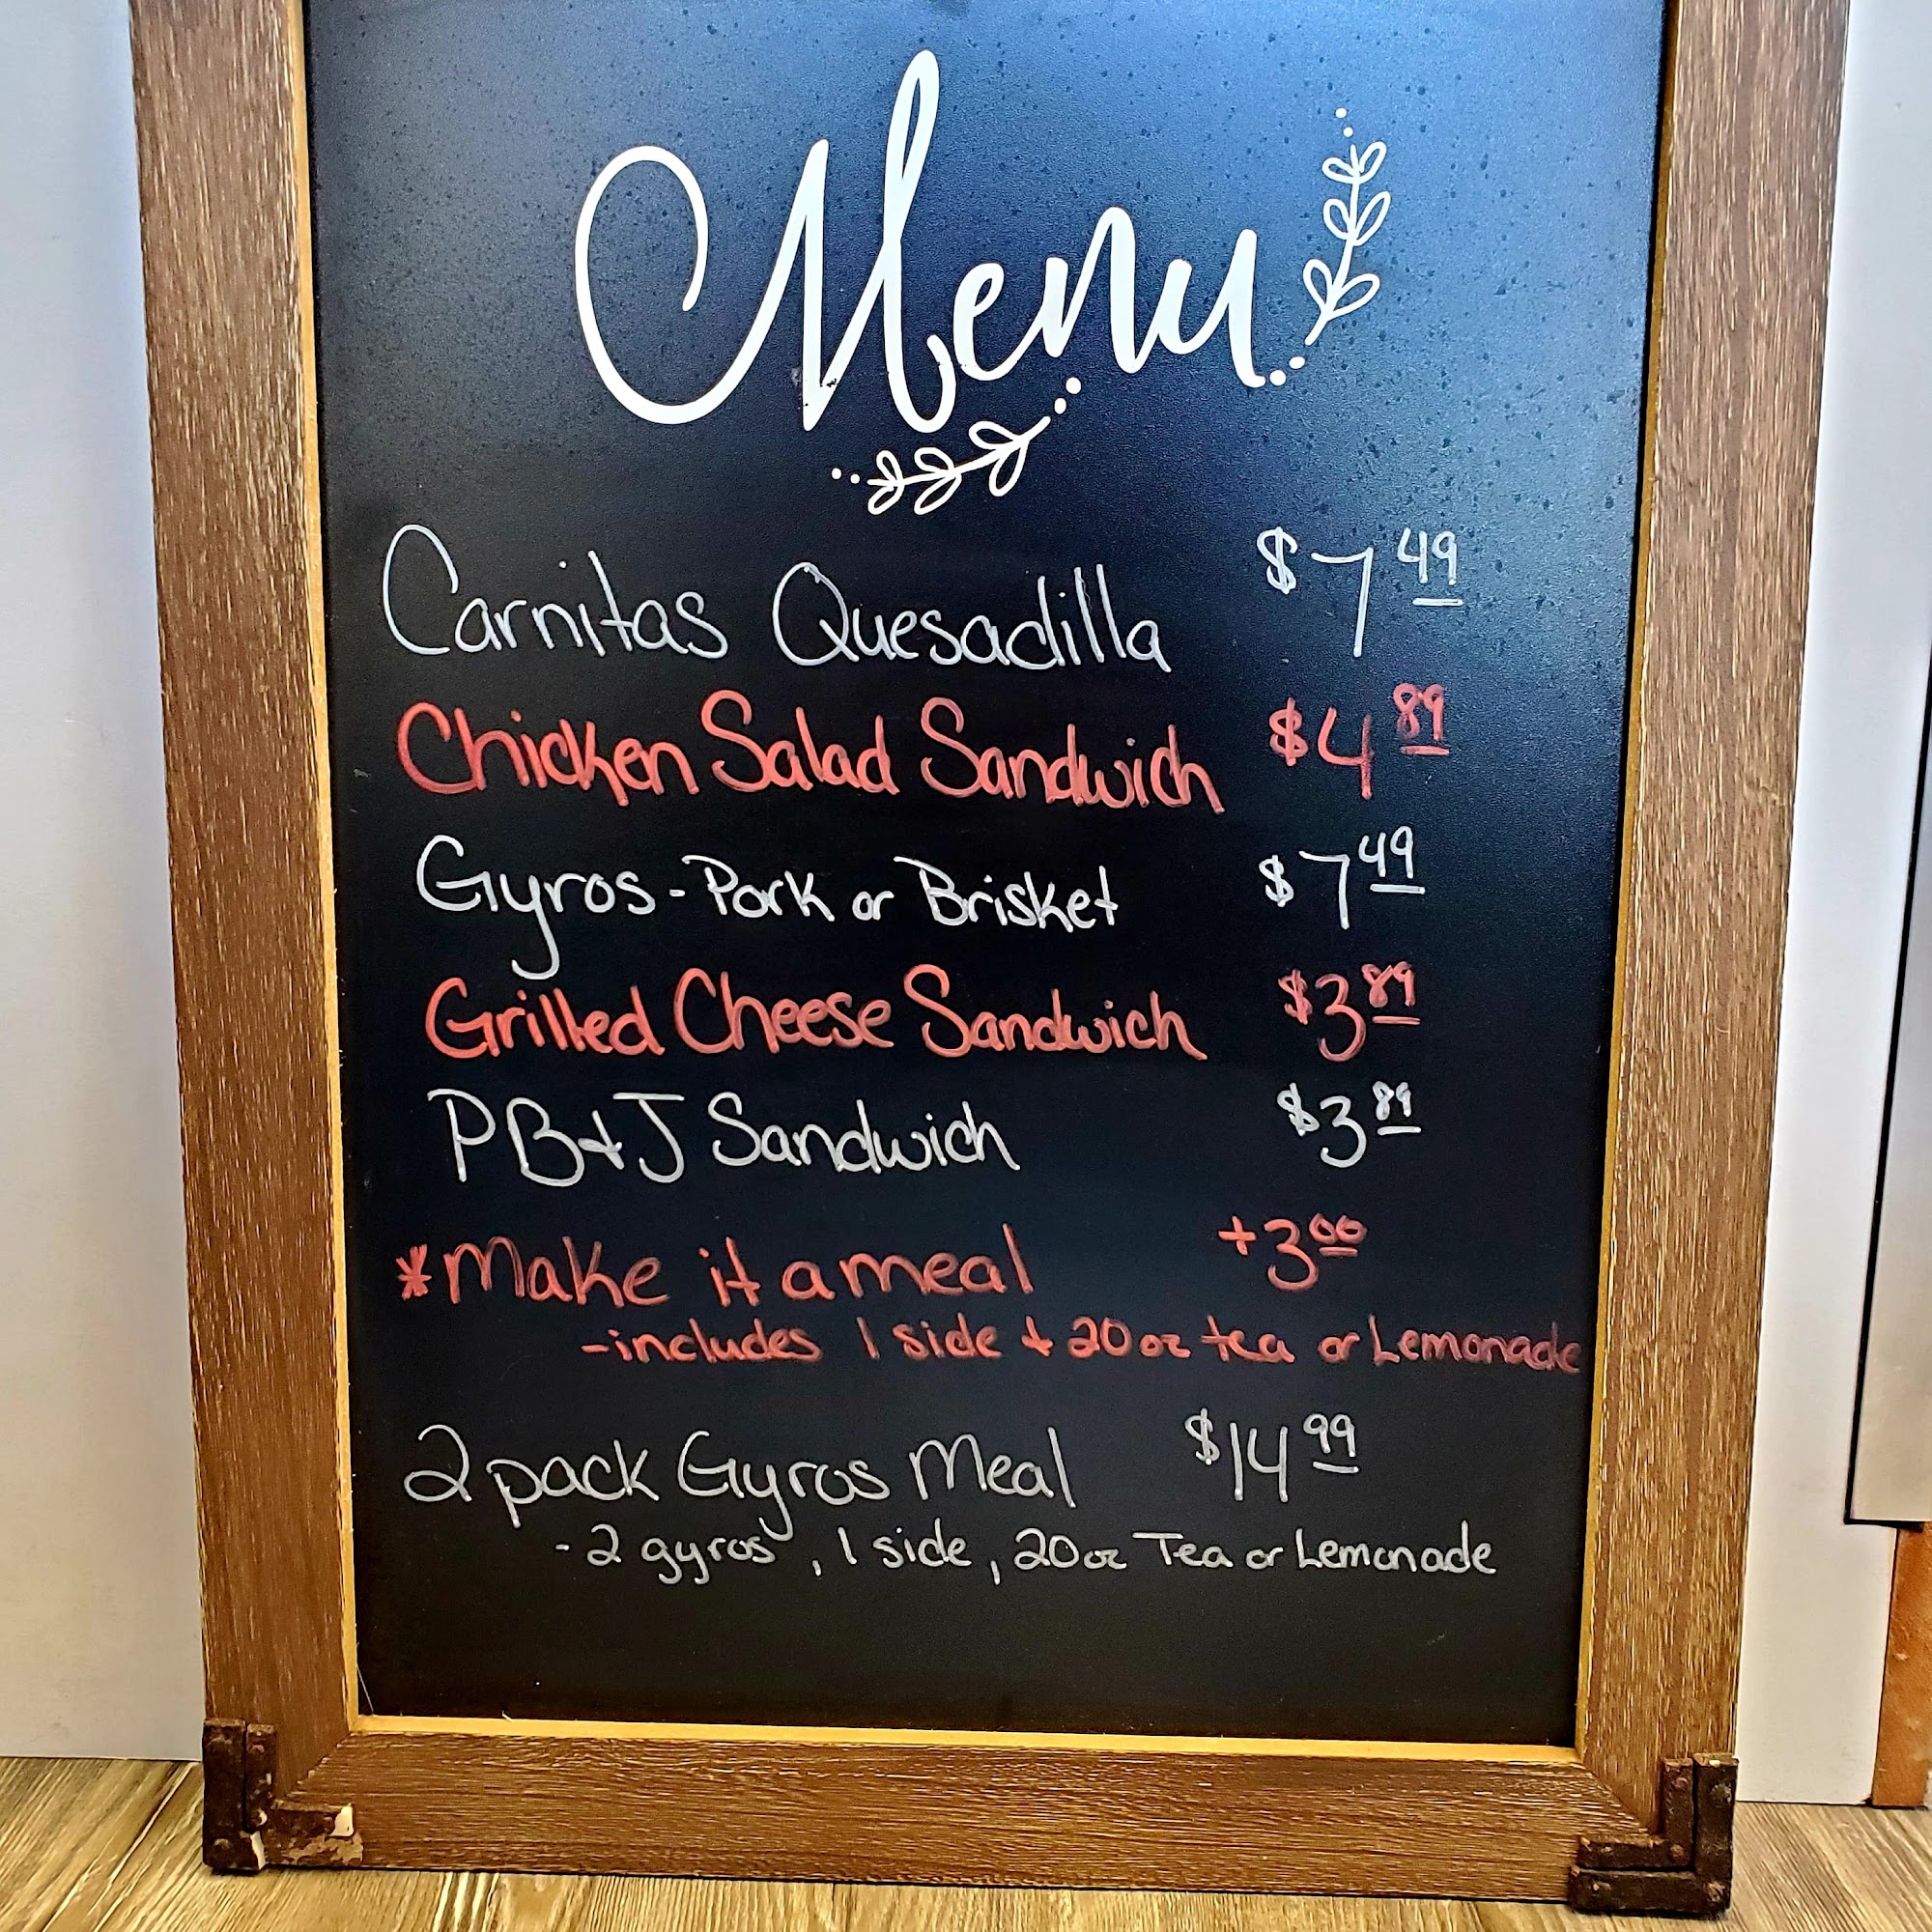 Menu
Carnitas Quesadilla $7 49
Chicken Salad Sandwich $4 89
Gyros - Pork or Brisket $7 49
Grilled Cheese Sandwich $3 89
PB+J Sandwich $3 89
*Make it a meal +3 00
-includes 1 side + 20 oz tea or Lemonade
2 pack Gyros Meal $14 99
- 2 gyros, 1 side, 20 oz Tea or Lemonade